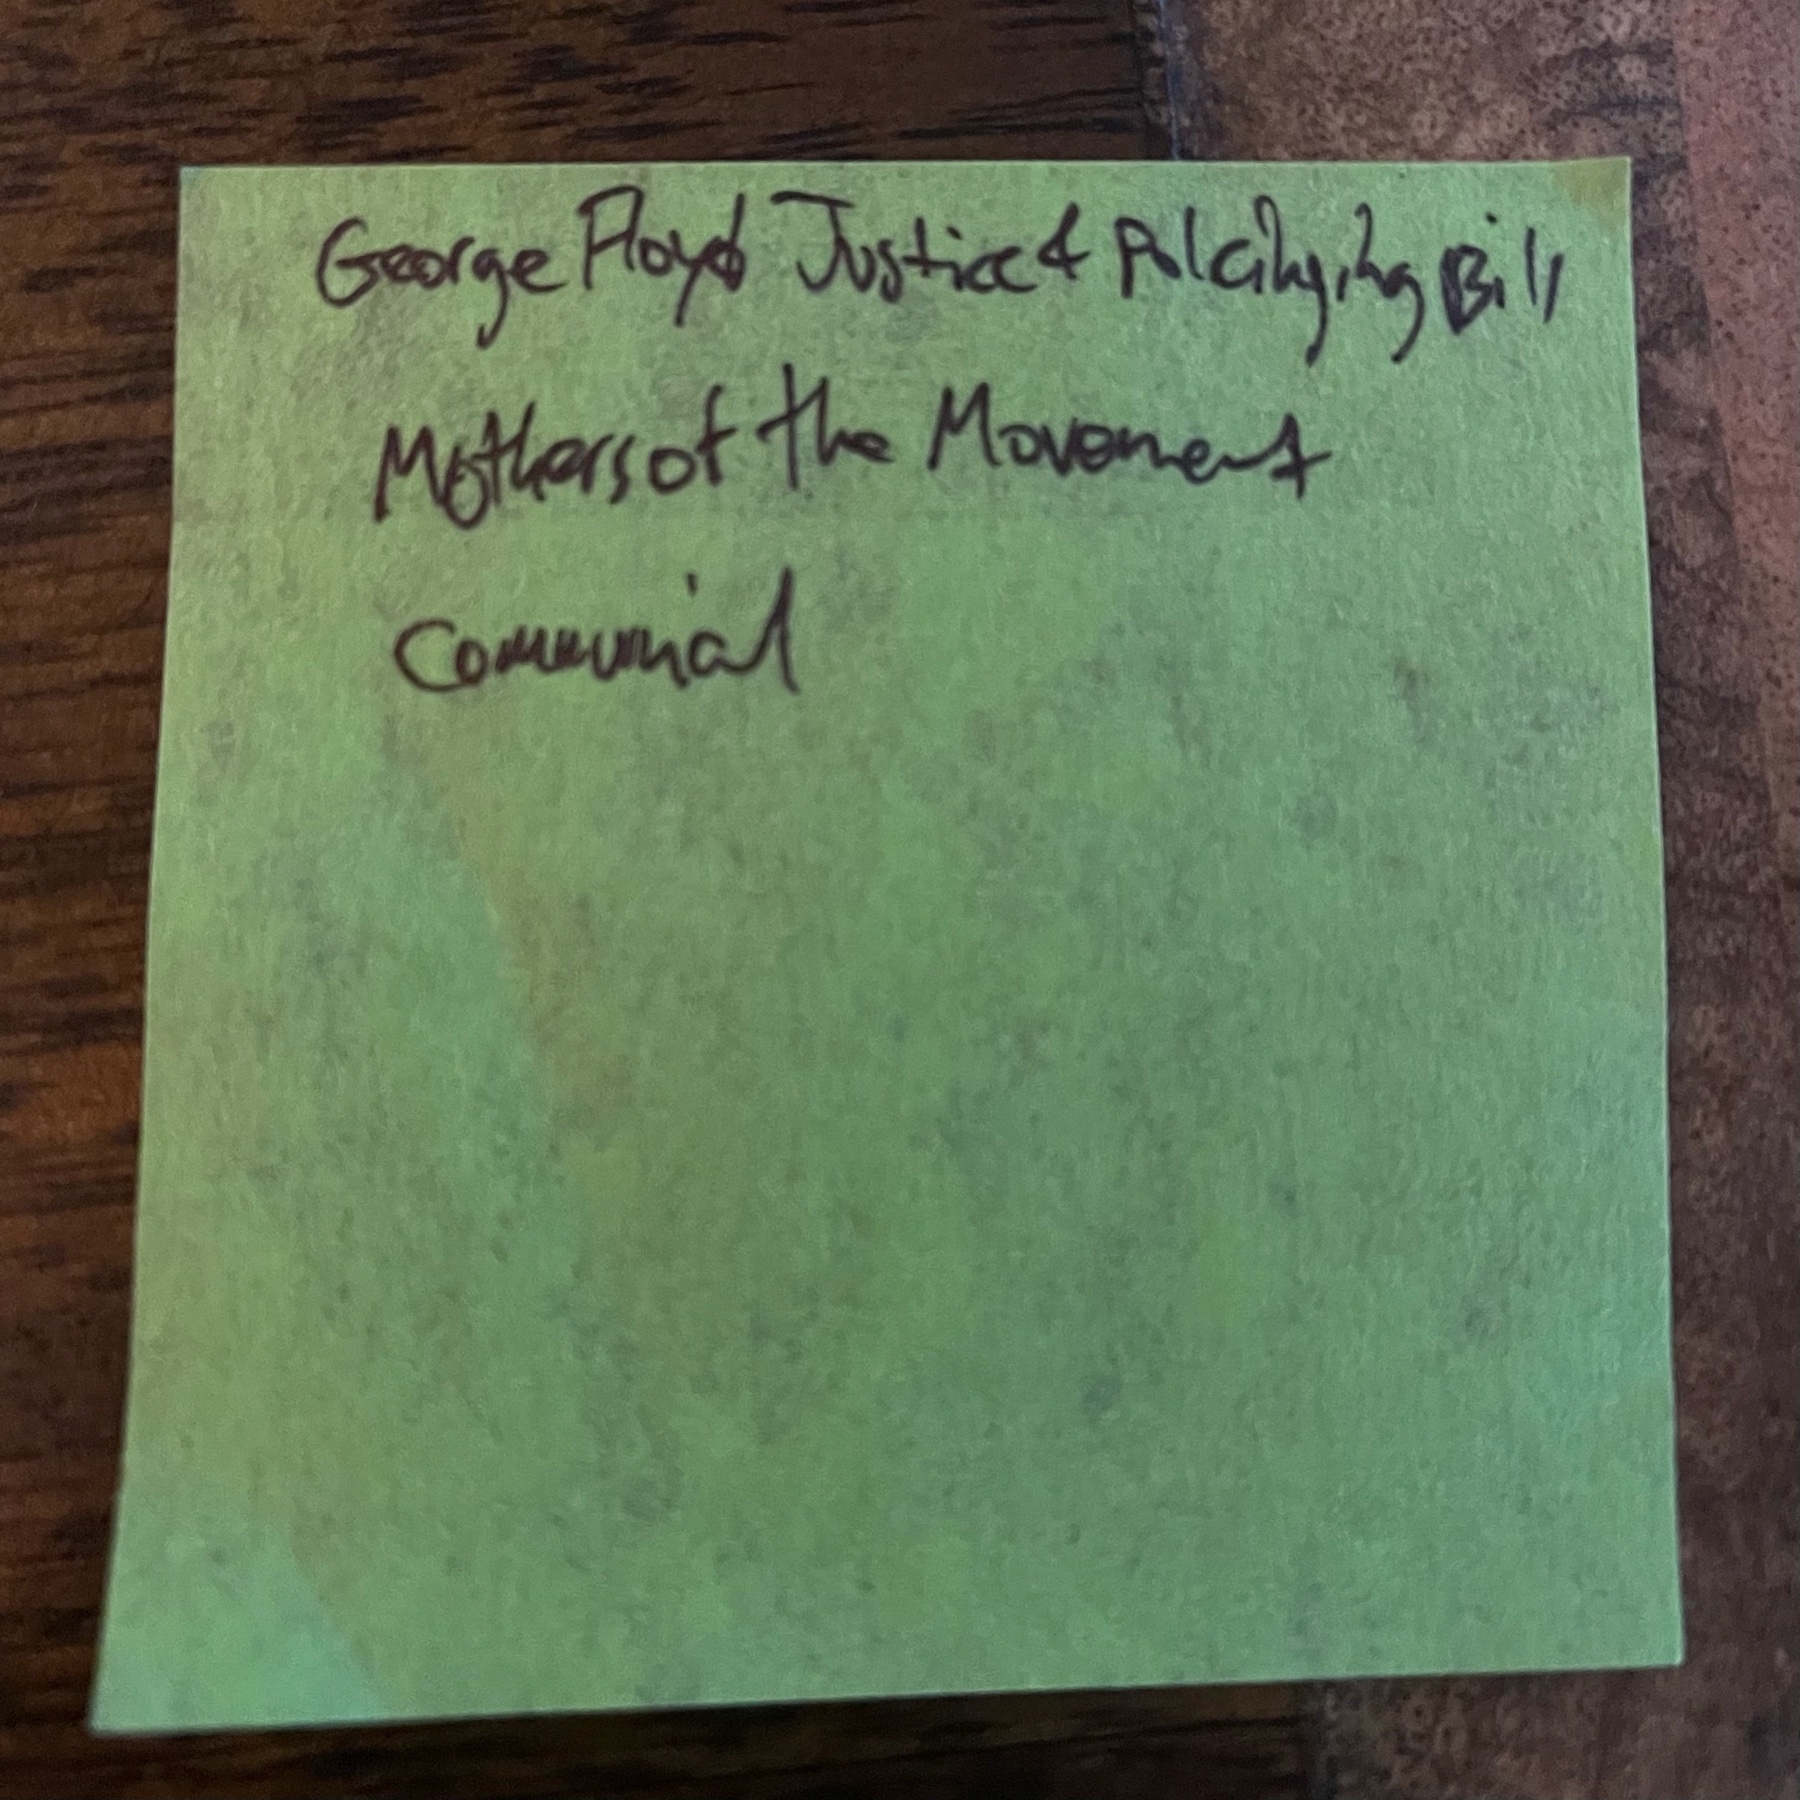 George Floyd Justice & Polcinging Bill
Mothers of the Movement
Communial